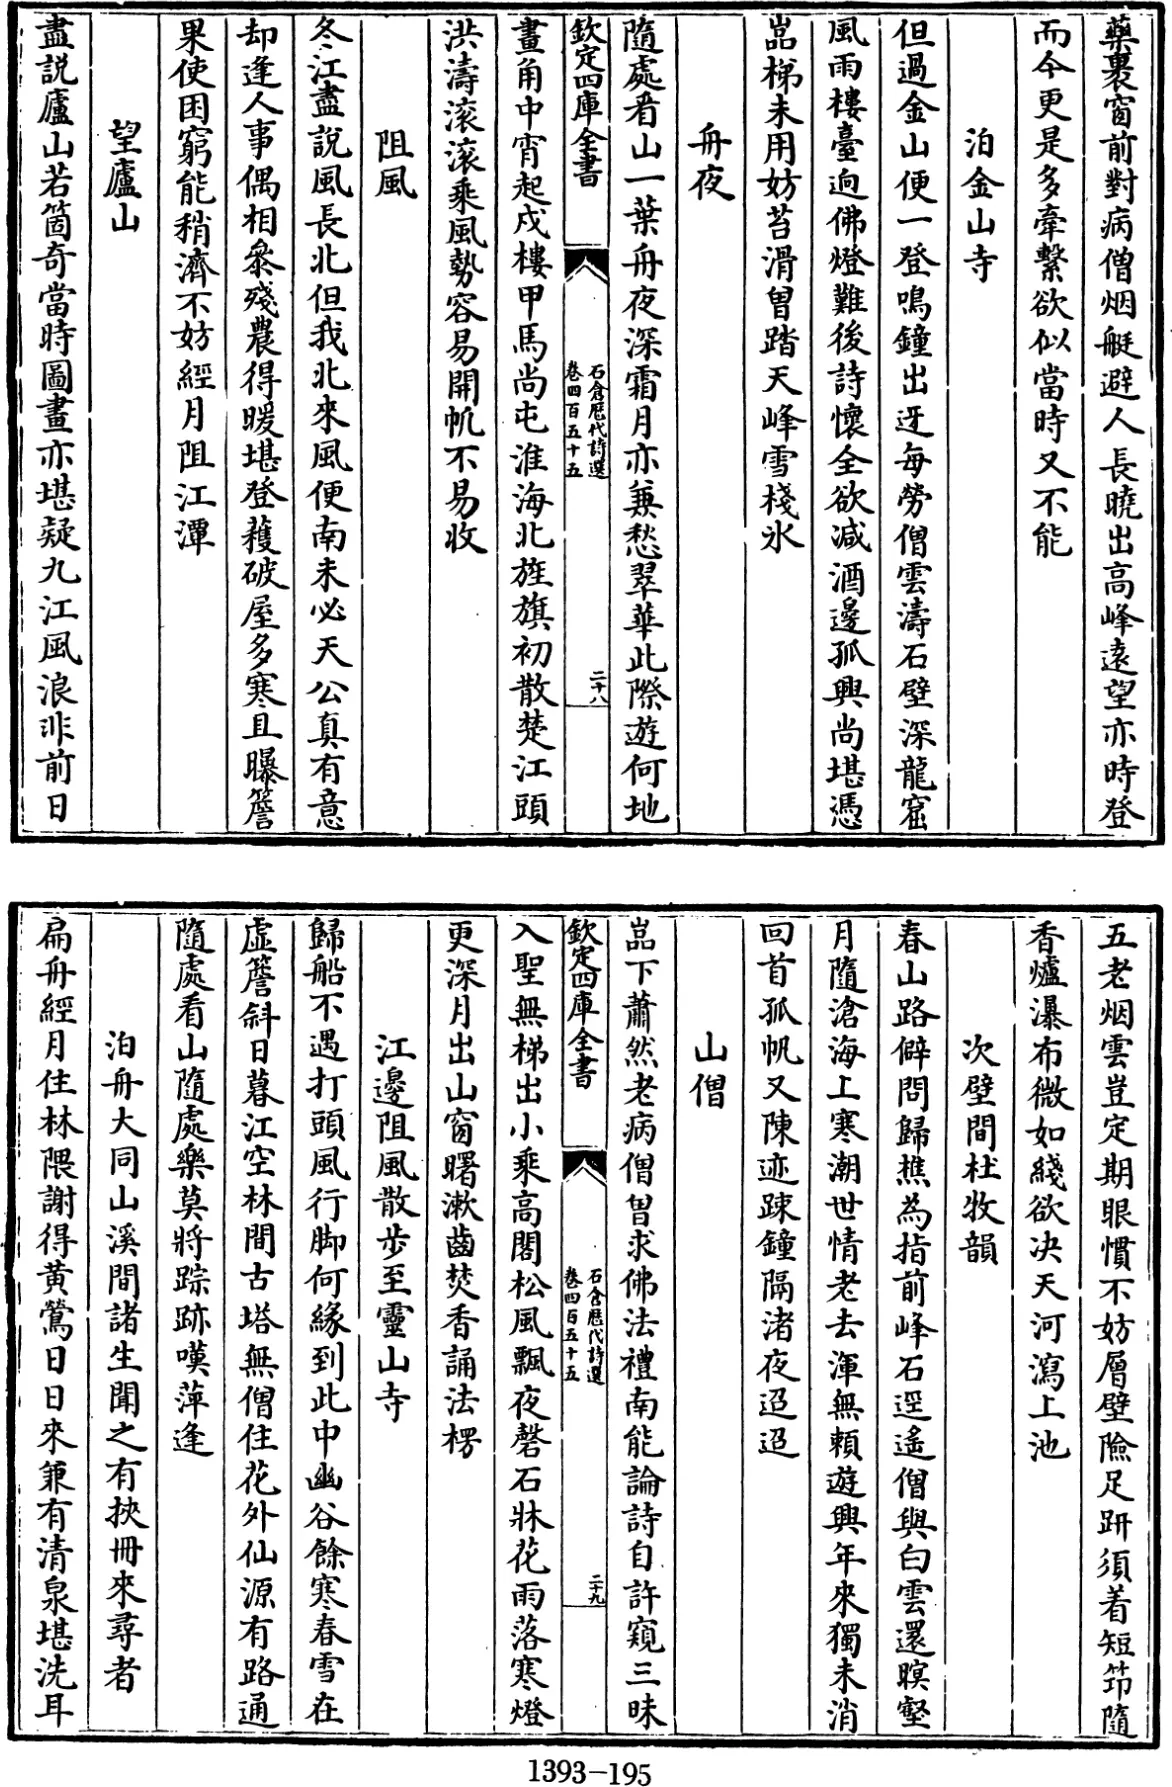 藥裹窗前對病僧烟艇避人長曉出高峰遠望亦時登
而今更是多牽繫欲似當時又不能
泊金山寺
但過金山便一登鳴鐘出迓每勞僧雲濤石壁深龍窟
風雨樓臺逈佛燈難後詩懷全欲减酒邊孤興尚堪憑
嵓梯未用妨苔滑曽踏天峰雪棧氷
舟夜
隨處看山一葉舟夜深霜月亦兼愁翠華此際遊何地
欽定四庫全書
石倉歴代詩選
卷四百五十五
二十八
畫角中宵起戍樓甲馬尚屯淮海北旌旗初散楚江頭
洪濤滚滚乘風勢容易開帆不易收
阻風
冬江盡說風長北但我北來風便南未必天公真有意
却逢人事偶相叅殘農得暖堪登穫破屋多寒且曝簷
果使困窮能稍濟不妨經月阻江潭
望廬山
盡説廬山若箇奇當時圖畫亦堪疑九江風浪非前日
五老烟雲豈定期眼慣不妨層壁險足趼須着短笻隨
香爐瀑布微如綫欲决天河瀉上池
次壁間杜牧韻
春山路僻問歸樵為指前峰石逕遙僧與白雲還暝壑
月隨滄海上寒潮世情老去渾無賴遊興年來獨未消
回首孤帆又陳迹踈鐘隔渚夜迢迢
山僧
嵓下蕭然老病僧曽求佛法禮南能論詩自許窺三昧
欽定四庫全書
石倉歴代詩選
卷四百五十五
二十九
入聖無梯出小乘高閣松風飄夜磬石牀花雨落寒燈
更深月出山窗曙漱齒焚香誦法楞
江邊阻風散步至靈山寺
歸船不遇打頭風行脚何緣到此中幽谷餘寒春雪在
虛簷斜日暮江空林間古塔無僧住花外仙源有路通
隨處看山隨處樂莫將踪跡嘆萍逢
泊舟大同山溪間諸生聞之有挾冊來尋者
扁舟經月住林隈謝得黄鶯日日來兼有清泉堪洗耳
1393-195